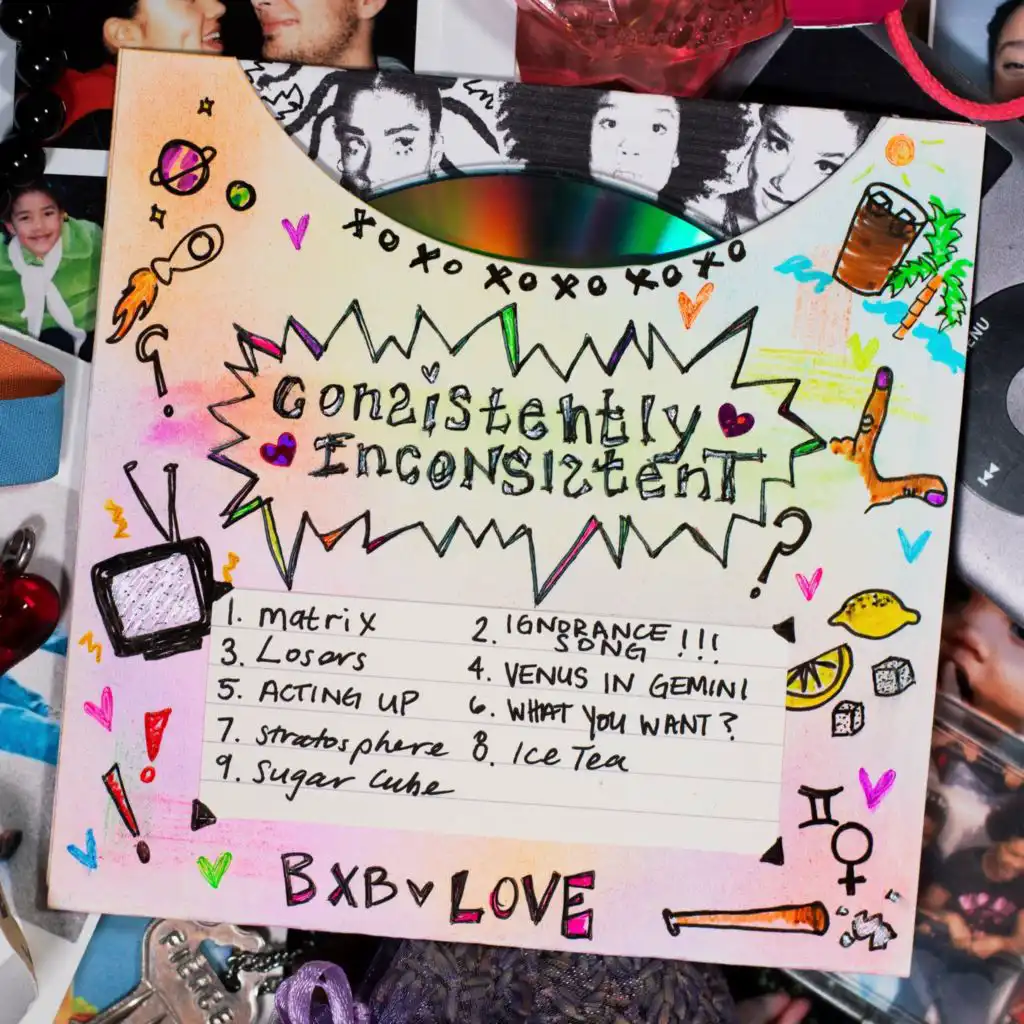 XOXO XOXOXOXO
Consistently
INCONSIStenT
1. matrix
2. IGNORANCE !!!
SONG
3. Losers
4. VENUS IN GEMINI
5. ACTING UP
6. WHAT YOU WANT?
7. stratosphere
8. Ice Tea
9. Sugar Cube
BXB LOVE
MENU